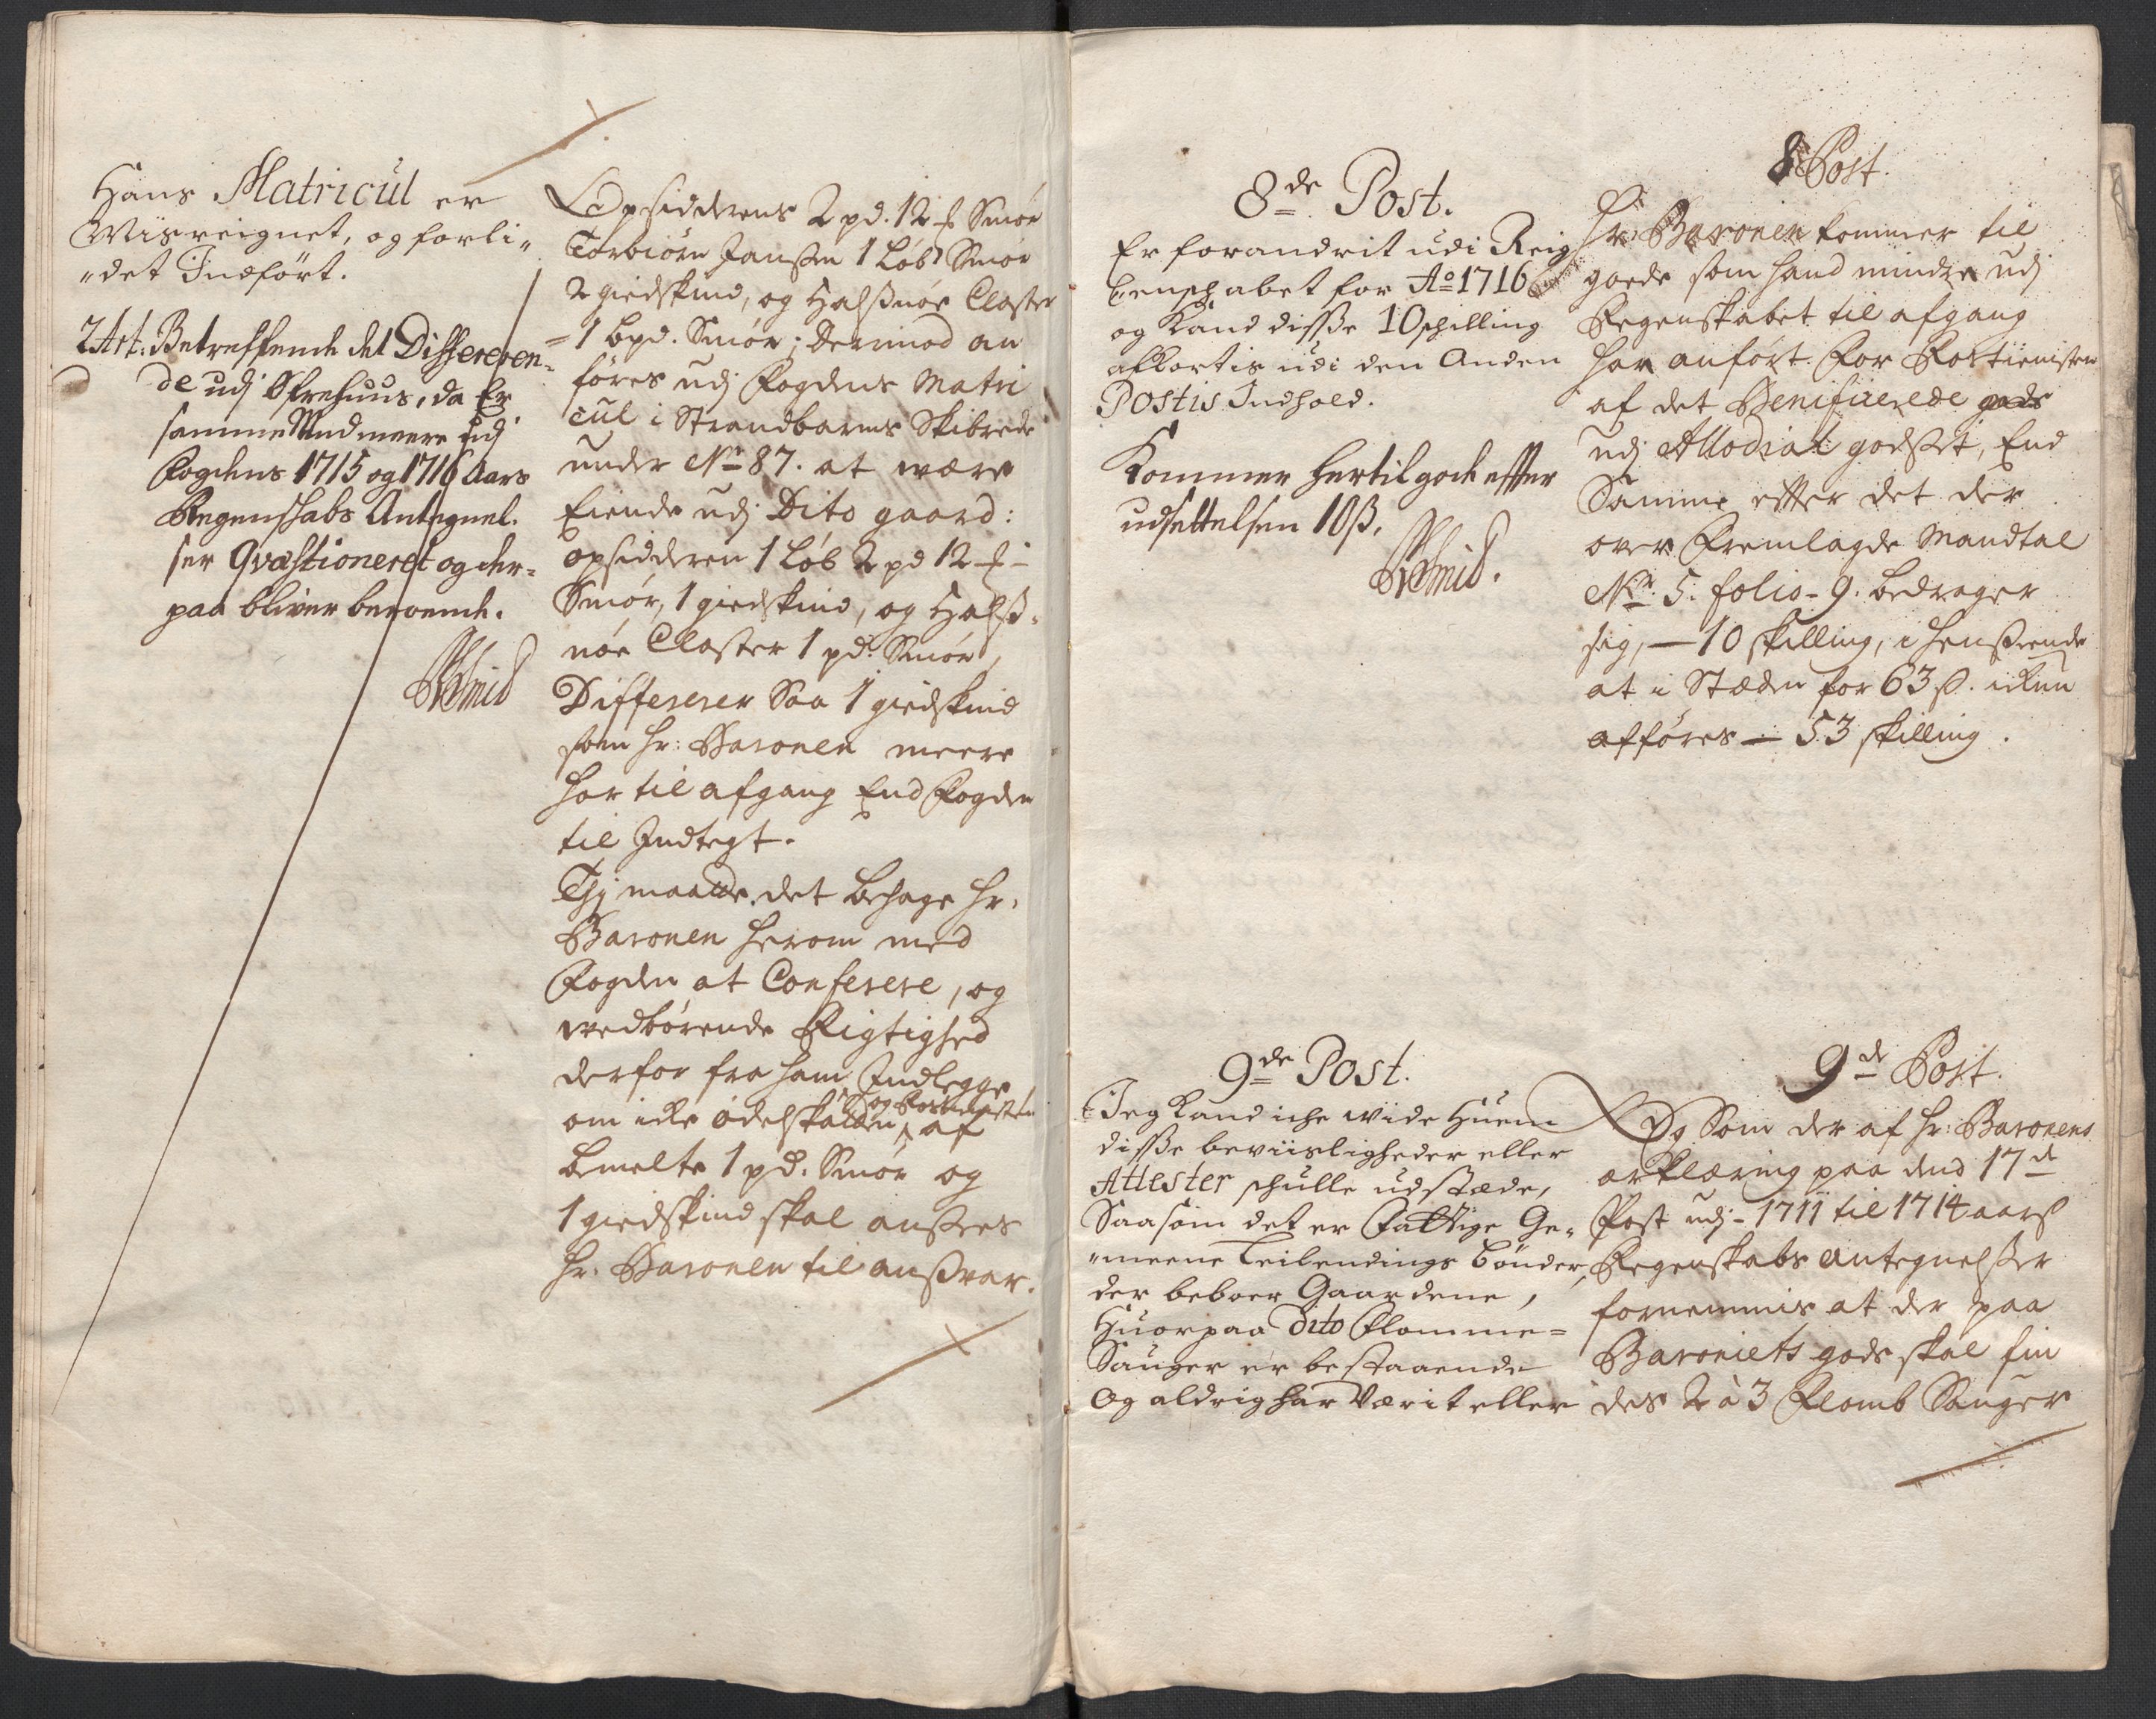 Hans Matricul er
Misreignet, og forli„
„det Indført.
2 Art: Betreffende det Differeren-
de udj Ofrehuus, da Er
samme Mud meere udj
Fogdens 1715 og 1716 Aars
Regenschabs Antegnel.
ser Qvæstioneret og der-
paa bliver beroende.
Opsidderens 2 pd. 12 Smør
Torbiørn Jansen 1 Løb Smør
2 giedskind, og Halsnøe Closter
= 1 bpd. Smør; Derimod an
føres udj Fogdens Matri
cul i Strandbarms Skibrede
under No 87. at være
Eiende udj Dito gaard:
opsidderen 1 Løb 2 pd 12
Smør, 1 giedskind, og Halsz-
nøe Closter 1 pd. Smør,
Differerer Saa 1 giedskind
som Hr: Baronen meere
har til afgang End Fogden
til Indtegt.
Thj maatte det behage Hr.
Baronen herom med
Fogden at Conferere, og
wedbørende Rigtighed
derfor fra ham Indlegge
og Rostienisten
om icke ødelskatten, af
bemelte 1 pd. Smør og
1 giedskind skal ansees
Hr. Baronen til ansvar.
8de Post.
Er forandrit udi Reig
Censchabet for Ao 1716
og Kand disse 10 schilling
afkortis udi den Anden
Postis Indhold.
Kommer hertil gode effter
udsettelsen 10 ß.
8 Post.
Hr: Baronen kommer til
goede som hand mindre udj
Regenskabet til afgang
har anført. For Rostienisten
af det Benificerede gods
udj Allodial godset, End
Samme effter det der
over Fremlagde Mandtal
Nr. 5. folio - 9. bedrager
sig, — 10 skilling, i henseende
at i Stæden for 63 ß. ickun
afføres — 53 skilling.
9de Post.
Jeg Kand iche wide Huem
disse beviisligheder eller
Attester schulle udstæde,
Saasom det er Fattige Ge„
„meene Leilendings bønder,
der beboer Gaardene,
Huorpaa Dito Flomme=
Sauger er bestaaende
Og aldrig har Værit eller
9de Post.
Og Som der af Hr: Baronens
erklæring paa dend 17de
Post udj - 1711 til 1714 aars
Regenskabs antegnelser
fornemmis at der paa
Baroniets gods skal fin
des 2 à 3 Flomb Sauger